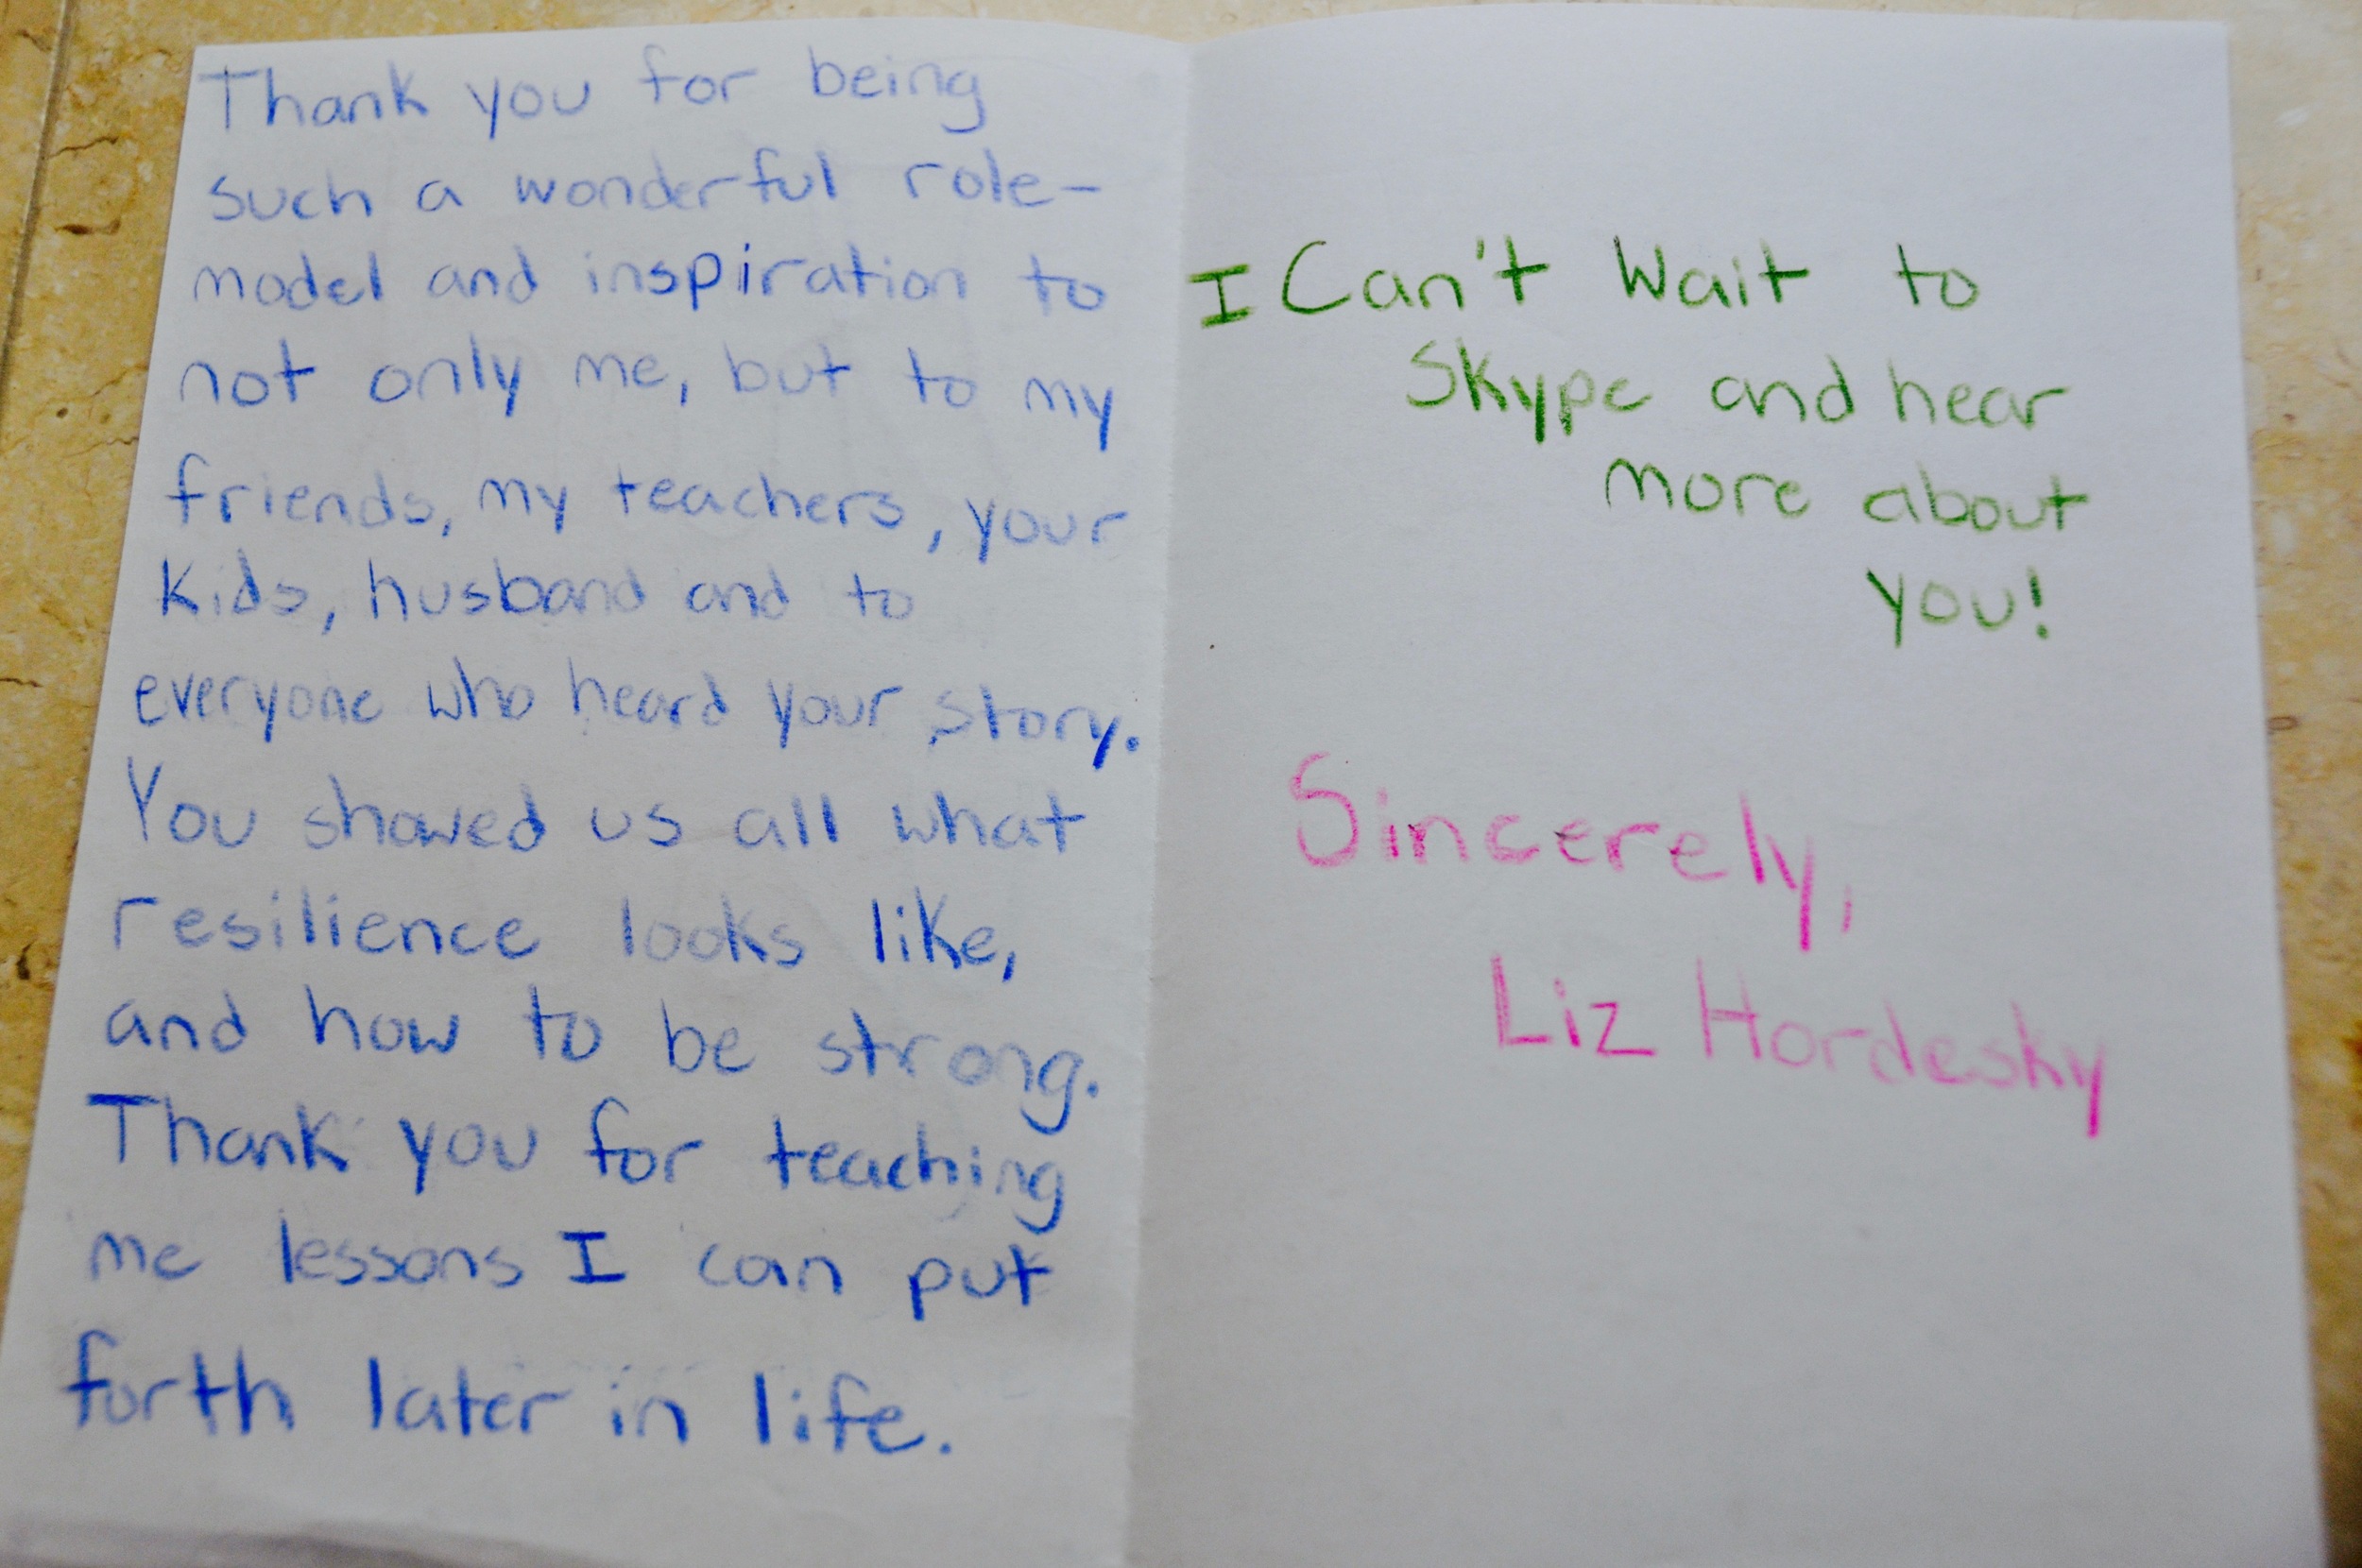 Thank you for being
such a wonderful role-
model and inspiration to
not only me, but to my
friends, my teachers, your
kids, husband and to
everyone who heard your story.
You showed us all what
resilience looks like,
and how to be strong.
Thank you for teaching
me lessons I can put
forth later in life.
I Can't Wait to
Skype and hear
more about
you!
Sincerely,
Liz Hordesky